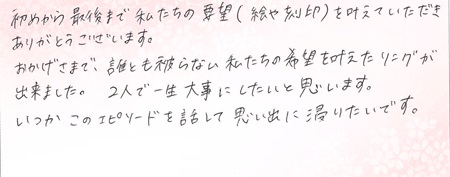 初めから最後まで私たちの要望(絵や刻印)を叶えていただき
ありがとうございます。
おかげさまで、誰とも被らない私たちの希望を叶えたリングが
出来ました。 2人で一生大事にしたいと思います。
いつかこのエピソードを話して思い出に浸りたいです。